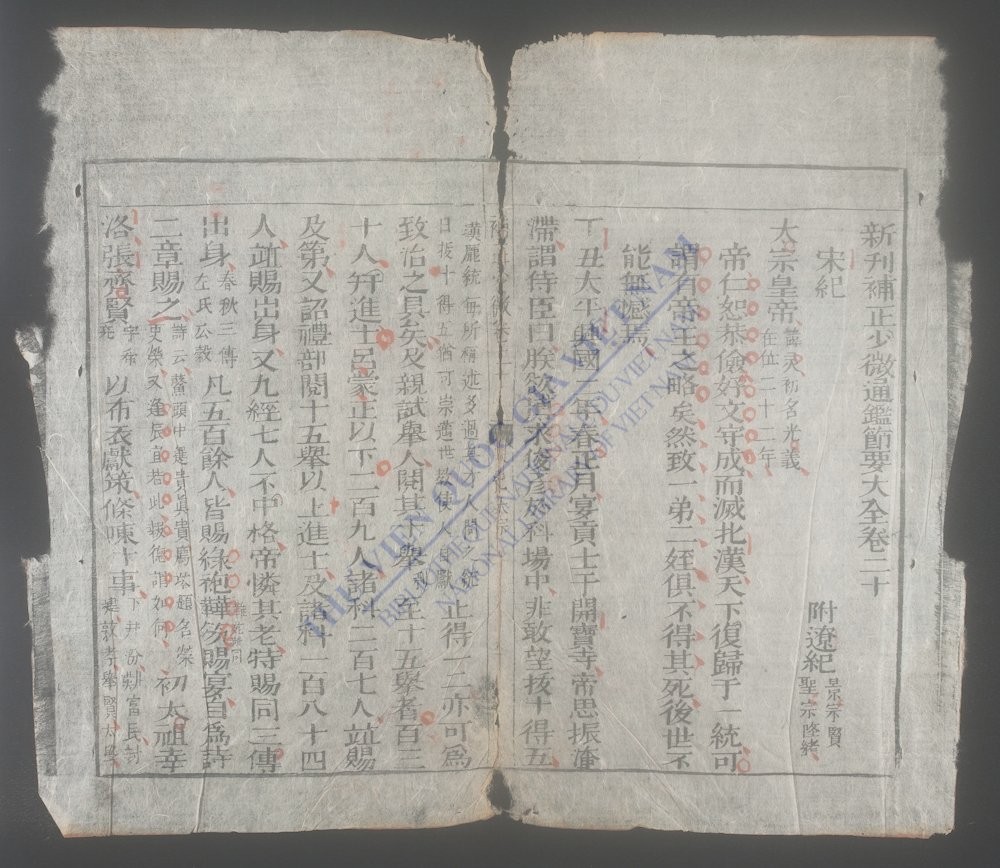 新刊補正少微通鑑節要大全卷二十
宋紀　附遼紀 景宗賢 聖宗隆緒
太宗皇帝 初名光義 在位二十二年
帝仁恕恭儉好文守成而滅北漢天下復歸于一統可
謂有帝王之略矣然致一弟二姪俱不得其死後世不
能無憾焉
丁丑太平興國二年春正月宴貢士于開寶寺帝思振淹
滯謂侍臣曰朕欲博求俊彥於科場中非敢望拔十得五
止得一二亦可爲
致治之具矣及親試舉人閱其十舉至十五舉者百三
十人并進士呂蒙正以下二百九人諸科二百七人竝賜
及第又詔禮部閱十五舉以上進士及諸科一百八十四
人竝賜出身又九經七人不中格帝憐其老特賜同三傳
出身 春秋三傳 左氏公穀 凡五百餘人皆賜綠袍鞾笏賜宴自爲詩
二章賜之 初太祖幸
洛張齊賢 以布衣獻策條陳十事
THƯ VIỆN QUỐC GIA VIỆT NAM
BIBLIOTHÈQUE NATIONALE DU VIETNAM
NATIONAL LIBRARY OF VIETNAM